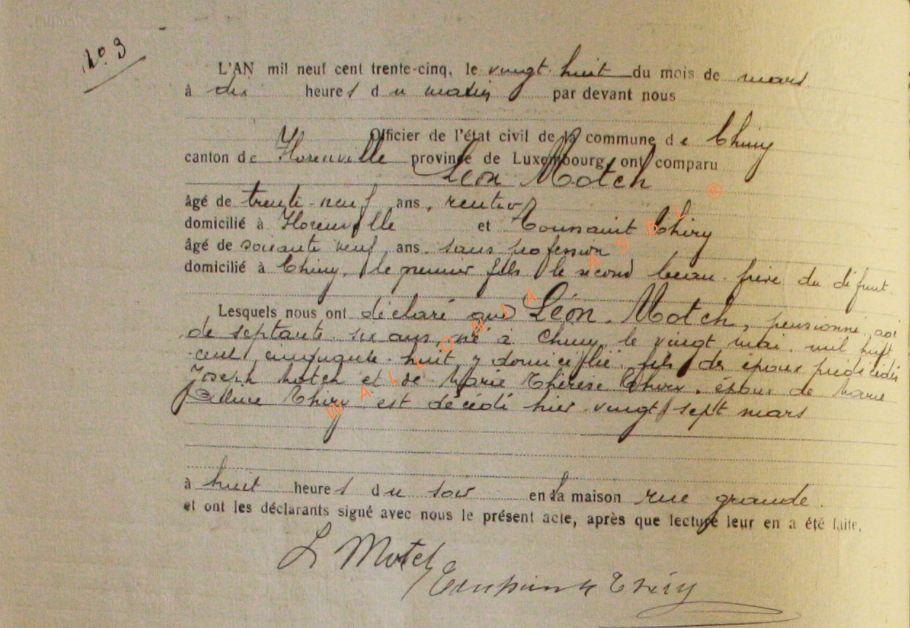 No. 3
L'AN mil neuf cent trente-cinq, le vingt huit du mois de mars
à dix heures du matin par devant nous
Officier de l'état civil de la commune de Chiny
canton de Florenville province de Luxembourg, ont comparu
Léon Motch
âgé de trente-neuf ans, rentier
domicilié à Florenville et Toussaint Thiry
âgé de soixante neuf ans, sans profession
domicilié à Chiny, le premier fils le second beau-frère du défunt
Lesquels nous ont déclaré que Léon Motch, pensionné, âgé
de septante six ans, né à Chiny, le vingt mai mil huit
cent cinquante huit y domicilié, fils des époux
Joseph Motch et de Marie Thérèse époux de Marie
Thiry est décédé hier vingt sept mars
à huit heures du soir en sa maison rue grande
et ont les déclarants signé avec nous le présent acte, après que lecture leur en a été faite.
L Motch
Toussaint Thiry
WALLONIA ASBL ®